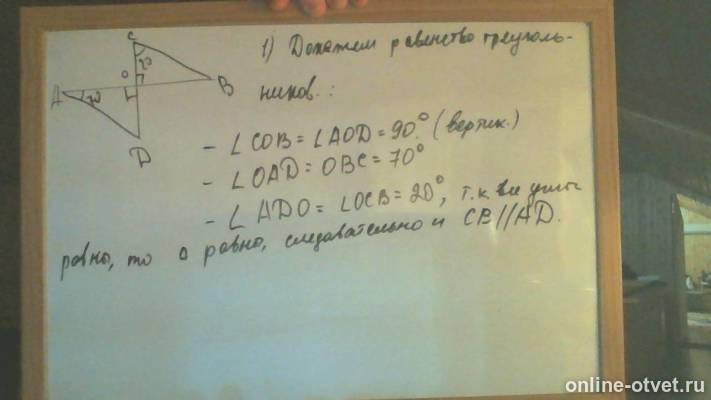 C
20
O
A
20
B
D
1) Докажем равенство треуголь-
ников.:
- ∠COB = ∠AOD = 90° (вертик.)
- ∠OAD = OBC = 70°
- ∠ADO = ∠OCB = 20°, т.к. все углы
равны, то Δ равно, следовательно и CB//AD.
online-otvet.ru